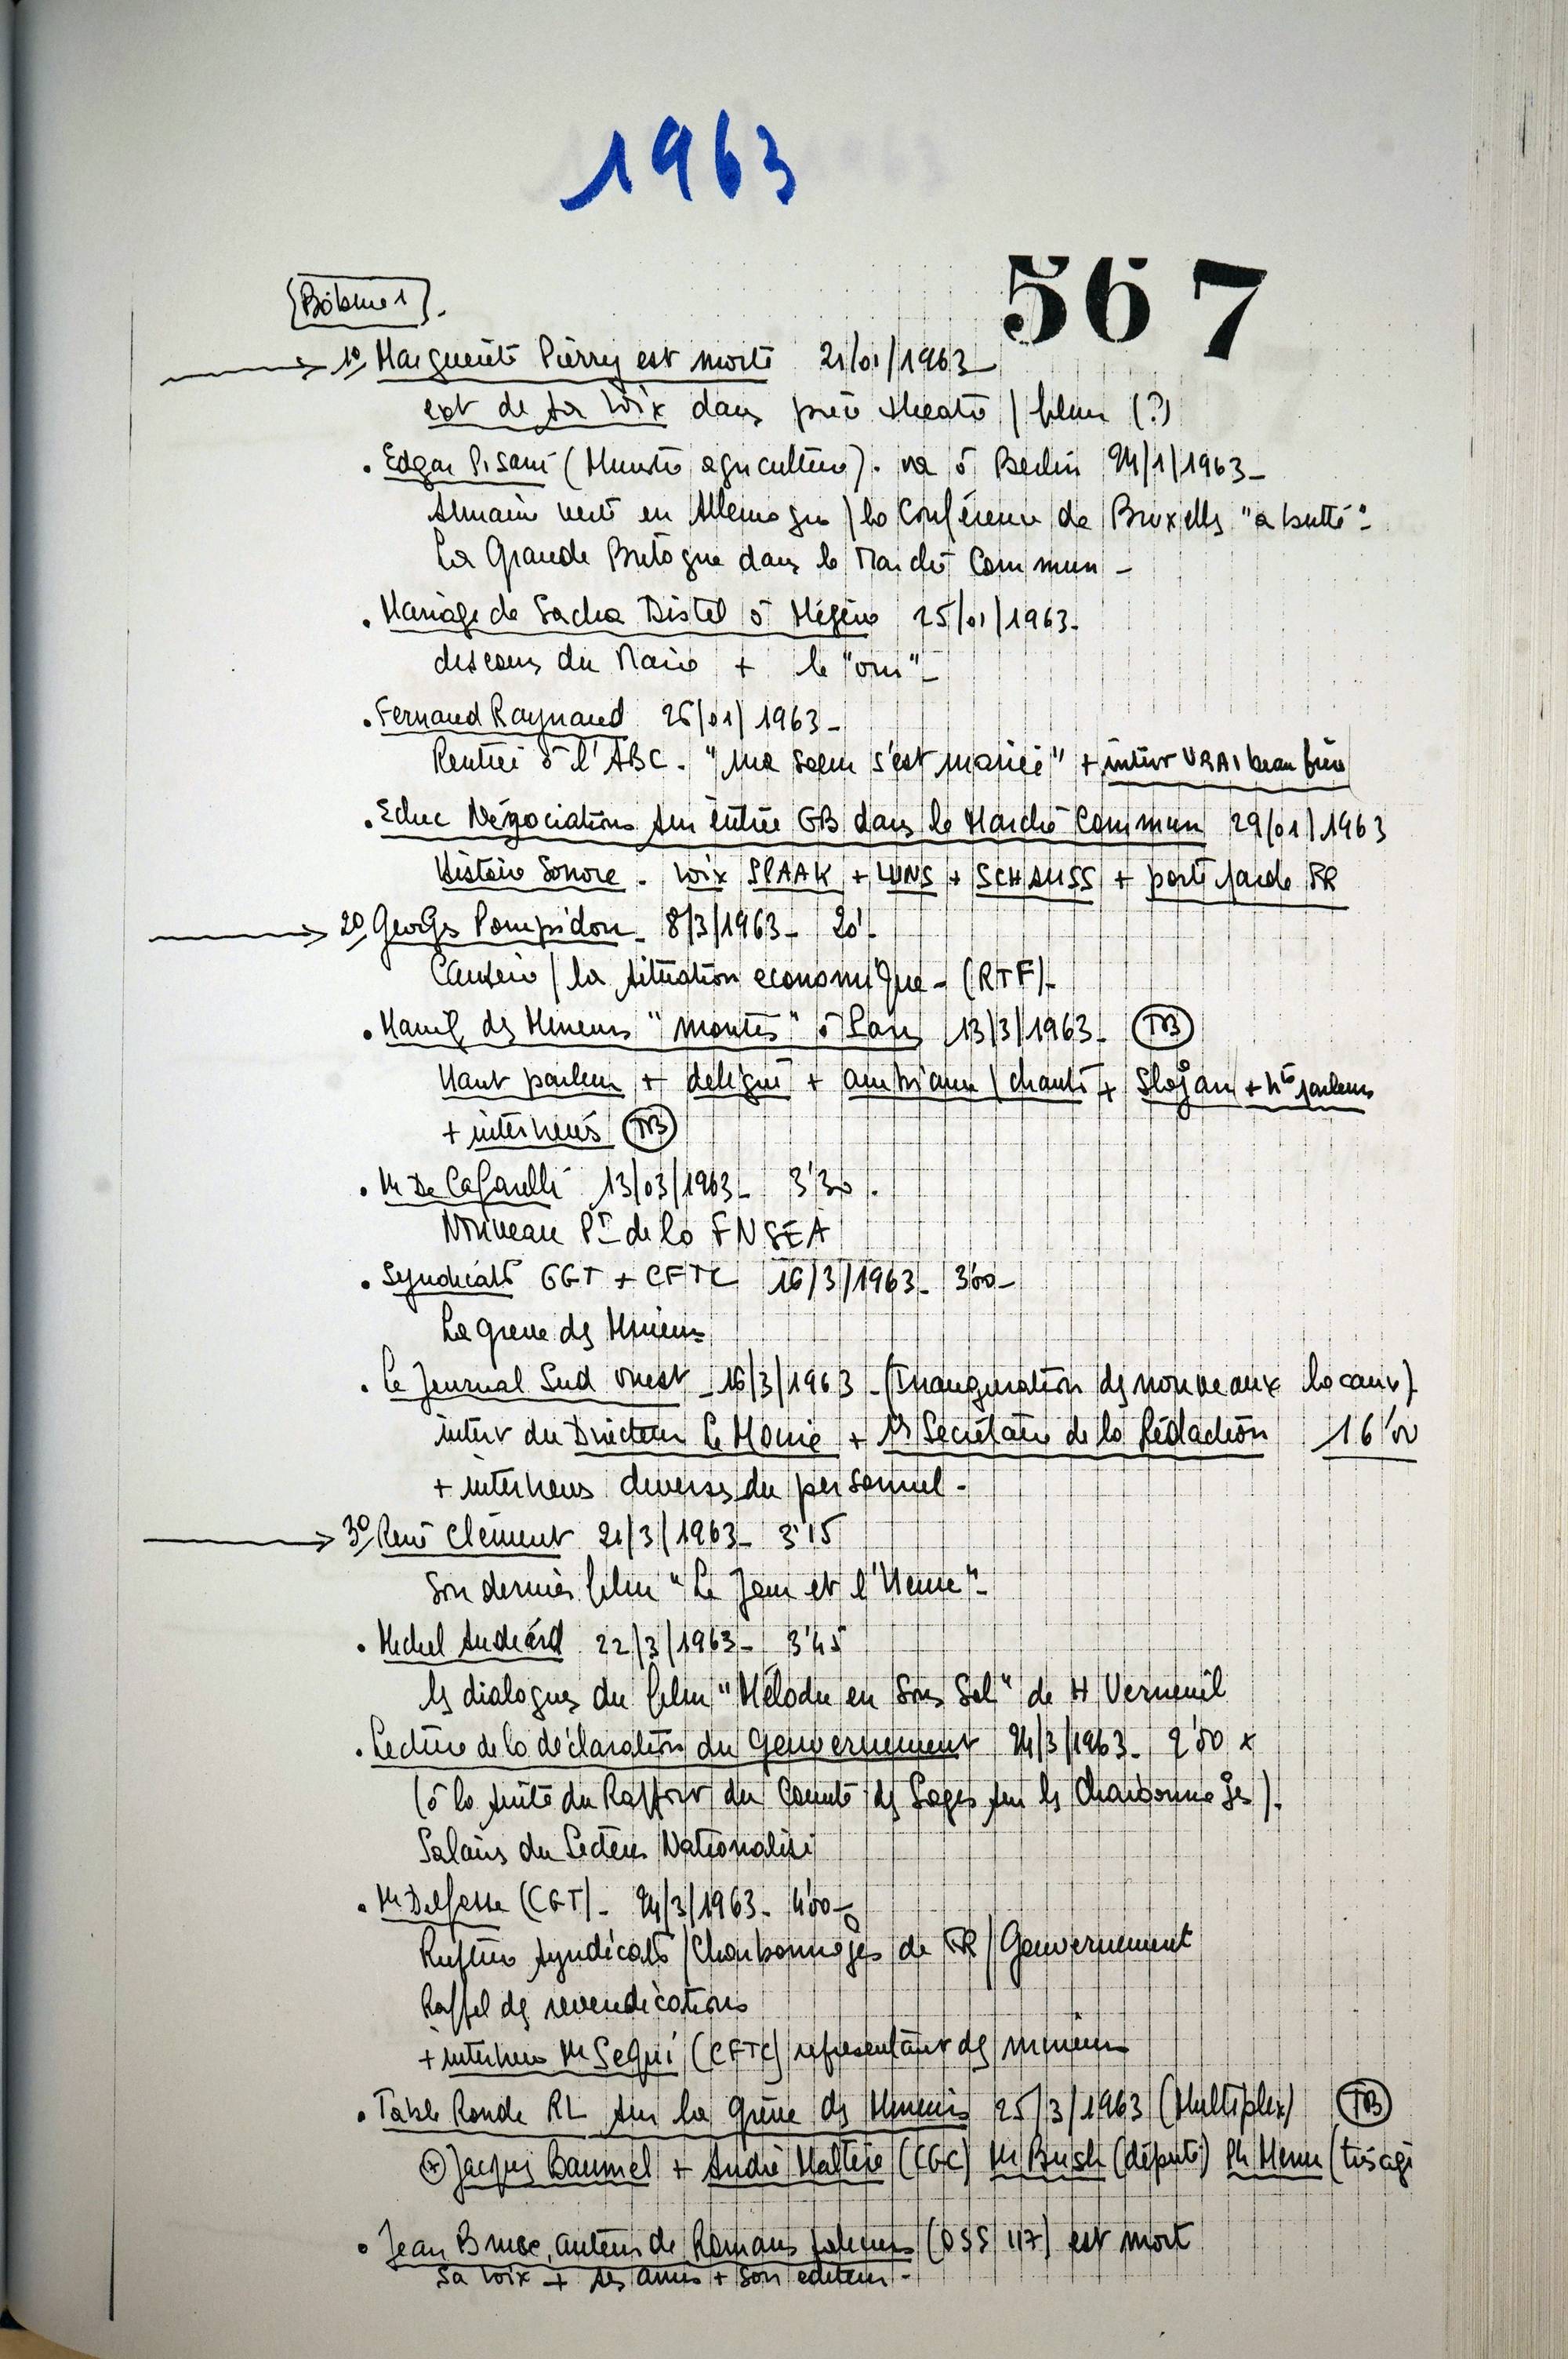 1963
567
[Bobine 1].
1°/ Marguerite Pierry est morte 21/01/1963
ext de sa voix dans pièce théatre / film (?)
. Edgar Pisani (Ministre agriculture). va à Berlin 24/1/1963 -
Semaine verte en Allemagne / la Conférence de Bruxelles "a butté"
La Grande Bretagne dans le Marché Commun -
. Mariage de Sacha Distel à Mégève 25/01/1963.
discours du Maire + le "oui" -
. Fernand Raynaud 26/01/1963 -
Rentrée à l'ABC. "Ma soeur s'est mariée" + interv VRAI beau frère
. Echec Négociations sur entrée GB dans le Marché Commun 29/01/1963
Histoire Sonore. voix SPAAK + LUNS + SCHAUSS + porte parole FR
2°/ Georges Pompidou - 8/3/1963 - 20' -
Causerie / la situation economique - (RTF) -
. Manif des Mineurs "montés" à Paris 13/3/1963 - TB
Haut parleur + délégué + ambiance / chants + Slogan + ht parleurs
+ interviews TB
. Mr De Cafarelli 13/03/1963 - 3'30.
Nouveau Pt de la FNSEA
. Syndicats CGT + CFTC 16/3/1963 - 3'00 -
La greve des Mineurs
. Le Journal Sud Ouest - 16/3/1963 - (Inauguration des nouveaux locaux).
interv du Directeur Le Moine + 1er Secrétaire de la Rédaction 16'00
+ interviews diverses du personnel -
3°/ René Clément 21/3/1963 - 3'15
Son dernier film "Le Jour et l'Heure" -
. Michel Audiard 22/3/1963 - 3'45
les dialogues du film "Mélodie en Sous Sol" de H Verneuil
. Lecture de la déclaration du Gouvernement 24/3/1963 - 2'50 x
(à la suite du Rapport du Comité des Sages sur les Charbonnages).
Salaires du Secteur Nationalisé
. Mr Delfosse (CGT) - 24/3/1963 - 4'00 -
Rupture syndicats / Charbonnages de FR / Gouvernement
Rappel des revendications
+ interview Mr Segui (CFTC) représentant des mineurs
. Table Ronde RL sur la grève des Mineurs 25/3/1963 (Multiplex) TB
Jacques Baumel + André Malterre (CGC) Mr Bush (député) Ph Henri (très agé
. Jean Bruce, auteur de Romans policiers (OSS 117) est mort
sa voix + ses amis + son editeur -